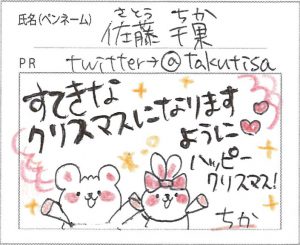 さとう ちか
氏名(ペンネーム) 佐藤 千果
PR twitter→@takutisa
すてきな
クリスマスになります
ように
ハッピー
クリスマス!
ちか